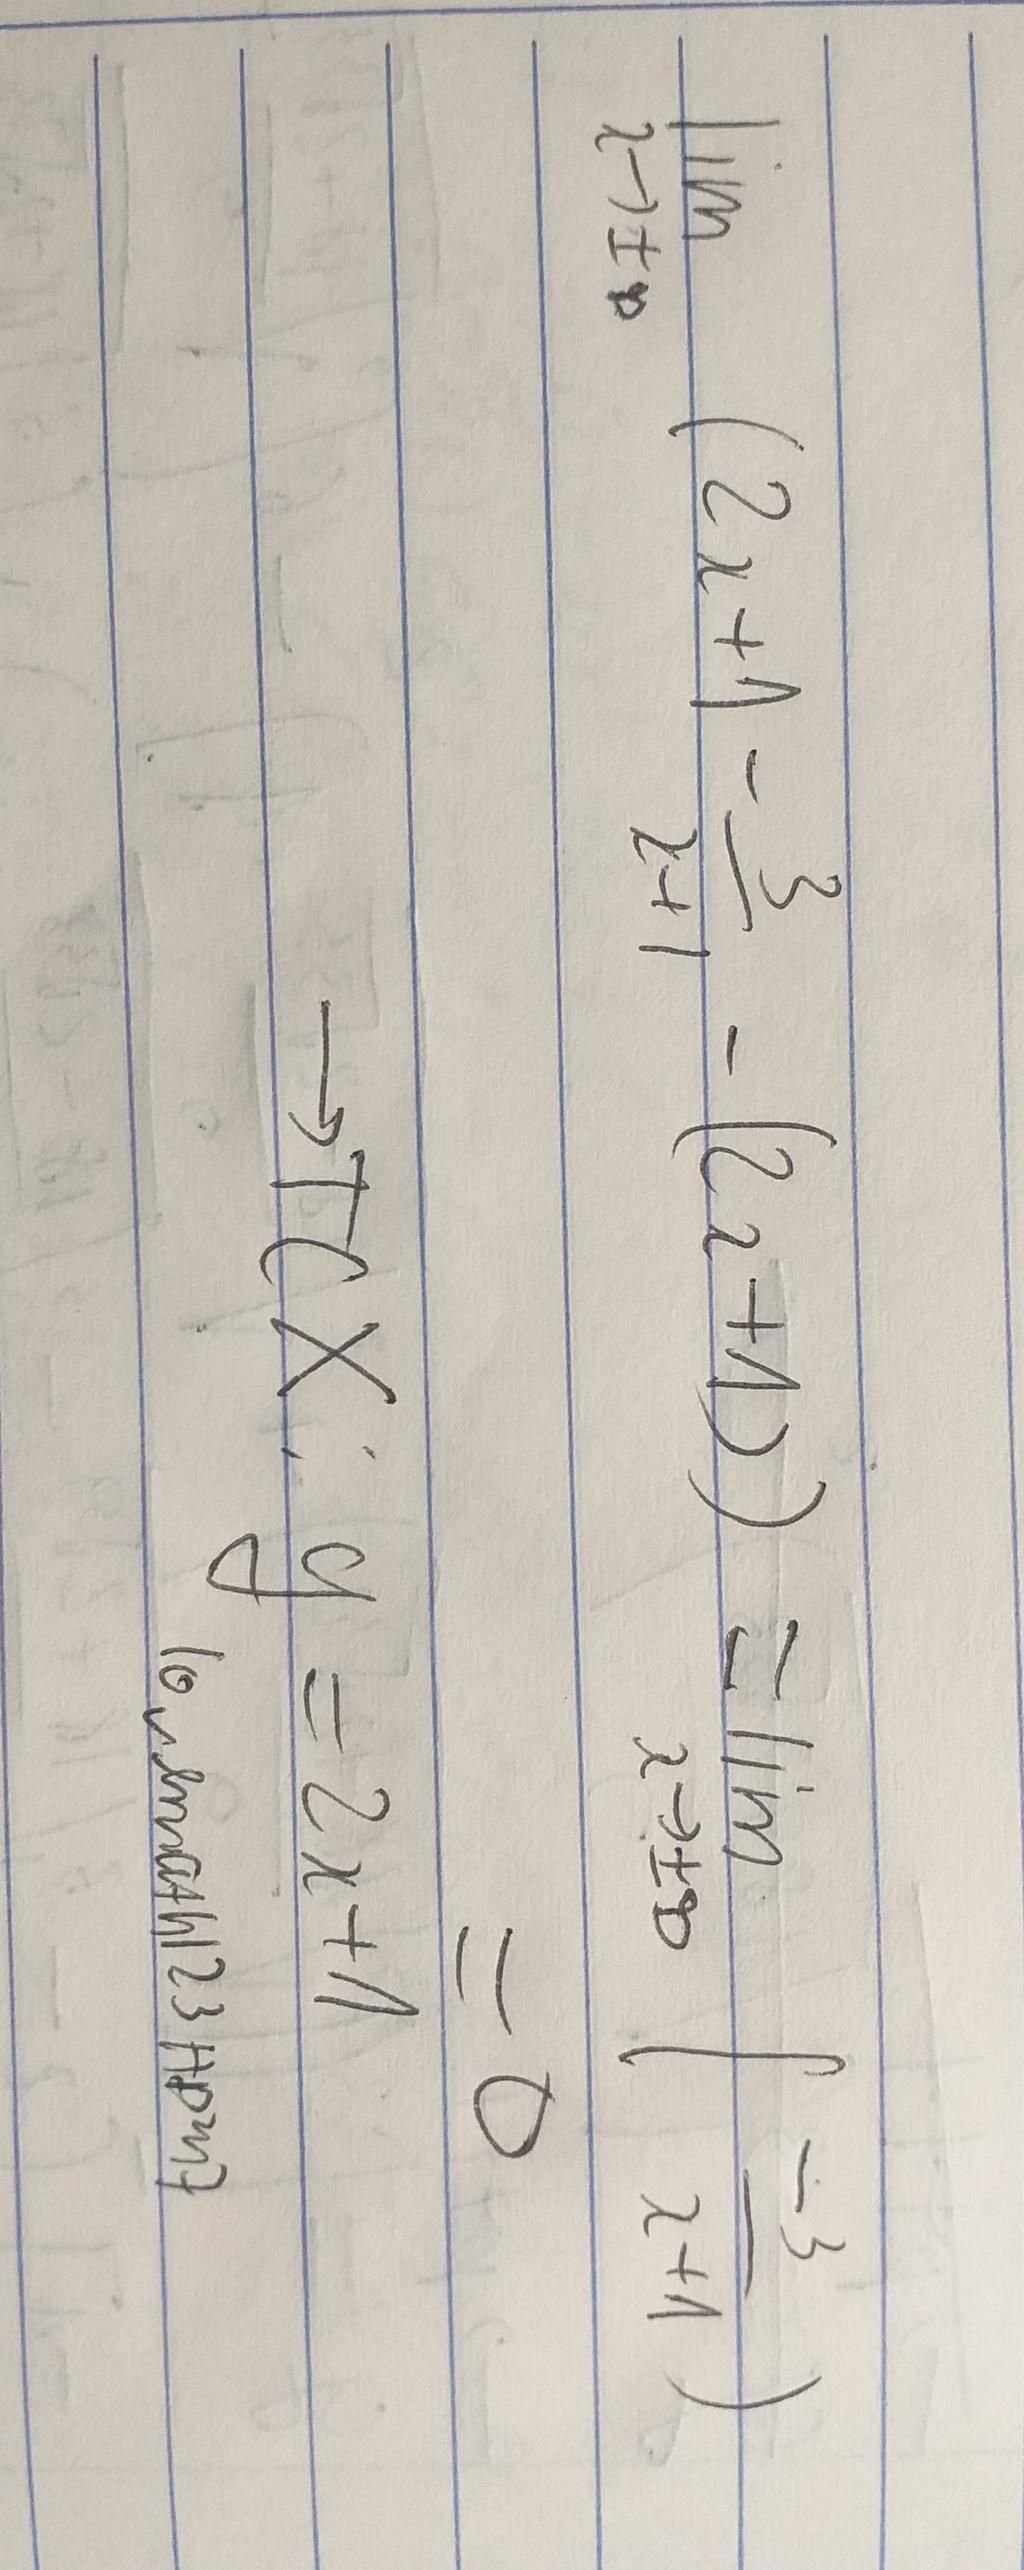 lim (2x+1 - 3/(x+1) - (2x+1)) = lim (-3/(x+1))
x→±∞ x→±∞
= 0
→TCX: y = 2x+1